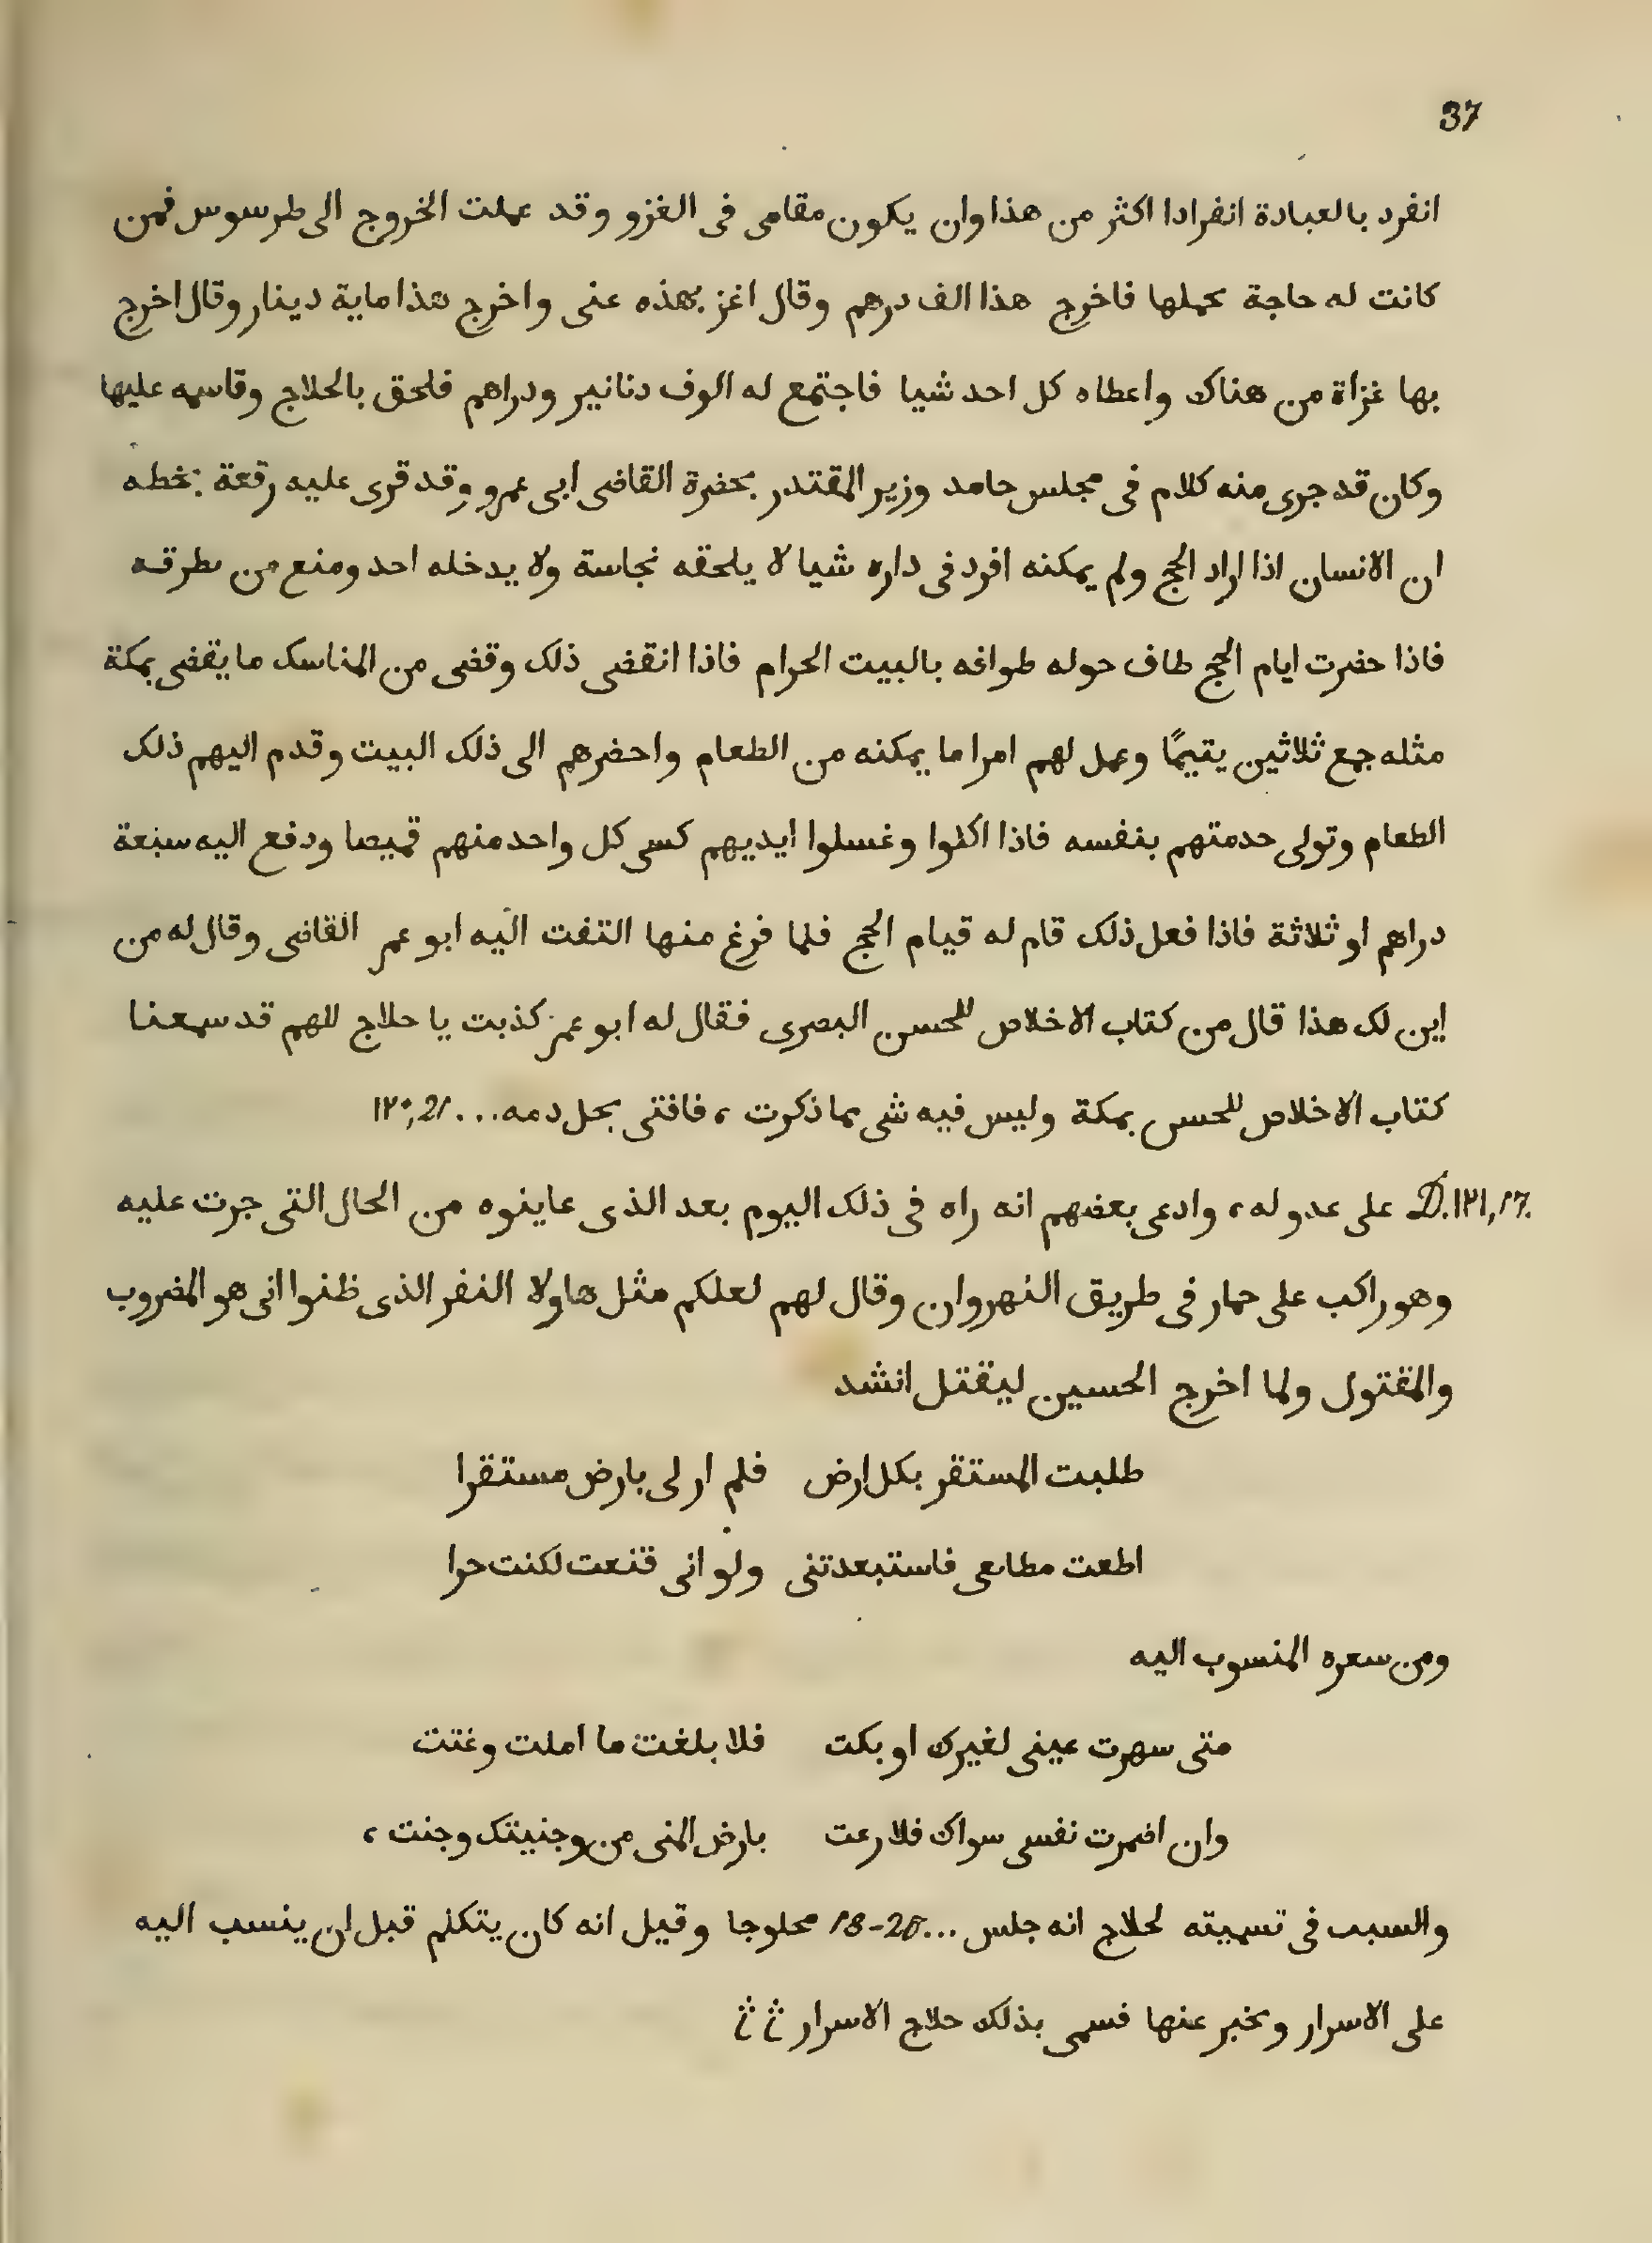 37
انفرد بالعبادة انفرادا اكثر من هذا وان يكون مقامى فى الغزو وقد عملت الخروج الى طرسوس فمن
كانت له حاجة تحملها فاخرج هذا الف درهم وقال اغز بهذه عنى واخرج هذا ماية دينار وقال اخرج
بها غزاة من هناك واعطاه كل احد شيا فاجتمع له الوف دنانير ودراهم فلحق بالحلاج وقاسمه عليها
وكان قد جرى منه كلام فى مجلس حامد وزير المقتدر بحضرة القاضى ابى عمرو وقد قرى عليه رقعة بخطه
ان الانسان اذا اراد الحج ولم يمكنه افرد فى داره شيا لا يلحقه نجاسة ولا يدخله احد ومنع من تطرقه
فاذا حضرت ايام الحج طاف حوله طوافه بالبيت الحرام فاذا انقضى ذلك وقضى من المناسك ما يقضى بمكة
مثله جمع ثلاثين يتيمًا وعمل لهم امرا ما يمكنه من الطعام واحضرهم الى ذلك البيت وقدم اليهم ذلك
الطعام وتولى حدمتهم بنفسه فاذا اكلوا وغسلوا ايديهم كسى كل واحد منهم قميصا ودفع اليه سبعة
دراهم او ثلاثة فاذا فعل ذلك قام له قيام الحج فلما فرغ منها التفت اليه ابو عمر القاضى وقال له من
اين لك هذا قال من كتاب الاخلاص للحسن البصرى فقال له ابو عمر كذبت يا حلاج اللهم قد سمعنا
كتاب الاخلاص للحسن بمكة وليس فيه شى مما ذكرت ، فافتى بحل دمه ... ١٢٠,21
D.١٢١,17. على عدو له ، وادعى بعضهم انه راه فى ذلك اليوم بعد الذى عاينوه من الحال التى جرت عليه
وهو راكب على حمار فى طريق النهروان وقال لهم لعلكم مثل هاولا النفر الذى ظنوا انى هو المضروب
والمقتول ولما اخرج الحسين ليقتل انشد
طلبت المستقر بكل ارض فلم ار لى بارض مستقرا
اطعت مطامعى فاستبعدتنى ولو انى قنعت لكنت حرا
ومن سعره المنسوب اليه
متى سهرت عينى لغيرك او بكت فلا بلغت ما املت وغتت
وان اضمرت نفسى سواك فلا رعت بارض المنى من وجنيتك وجنت ،
والسبب فى تسميته لحلاج انه جلس ... 18-25 محلوجا وقيل انه كان يتكلم قبل ان ينسب اليه
على الاسرار ويخبر عنها فسمى بذلك حلاج الاسرار